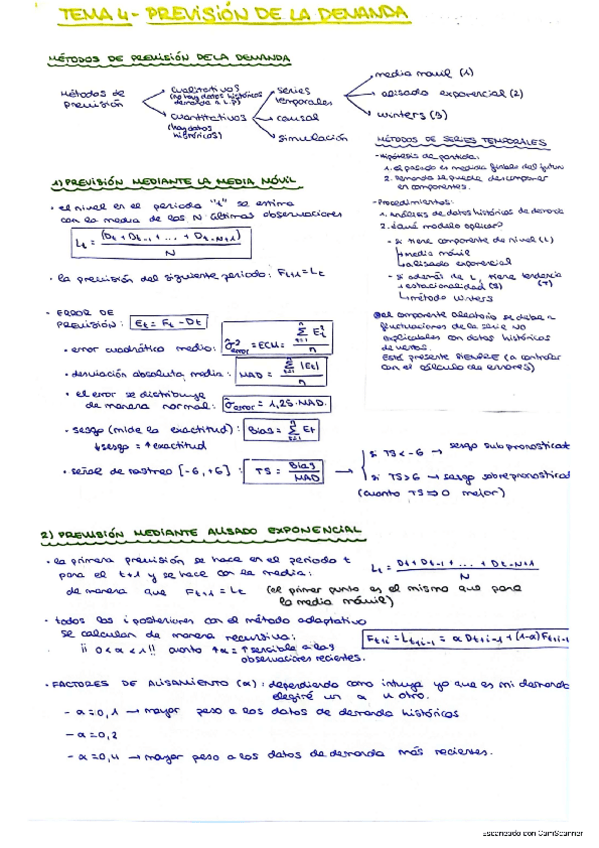 TEMA 4- PREVISIÓN DE LA DEMANDA
MÉTODOS DE PREVISIÓN DE LA DEMANDA
métodos de previsión
cualitativos (no hay datos históricos demanda a L.P)
cuantitativos (hay datos históricos)
series temporales
causal
simulación
media móvil (1)
alisado exponencial (2)
winters (3)
MÉTODOS DE SERIES TEMPORALES
-Hipótesis de partida:
1. El pasado es medida fiable del futur
2. Demanda se puede descomponer
en componentes.
-Procedimientos:
1. Análisis de datos históricos de demanda
2. ¿qué modelo aplicar?
- si tiene componente de nivel (L)
↳media móvil
↳alisado exponencial
- si además de L, tiene tendencia (T)
+ estacionalidad (S)
↳método winters
el componente aleatorio se debe a
fluctuaciones de la serie NO
explicables con datos históricos
de ventas.
Está presente SIEMPRE (a controlar
con el cálculo de errores)
1) PREVISIÓN MEDIANTE LA MEDIA MÓVIL
• el nivel en el periodo "t" se estima
con la media de las N últimas observaciones
Lt = (Dt + Dt-1 + ... + Dt-N+1) / N
• la previsión del siguiente periodo: Ft+1 = Lt
• ERROR DE
PREVISIÓN: Et = Ft - Dt
• error cuadrático medio: σ²error = ECM = Σ Et² / n
• desviación absoluta media: MAD = Σ |Et| / n
• el error se distribuye
de manera normal: σerror = 1,25 · MAD.
• sesgo (mide la exactitud): Bias = Σ Et
↓sesgo = ↑exactitud
• señal de rastreo [-6, +6] : TS = Bias / MAD
si TS < -6 → sesgo subpronosticat
si TS > 6 → sesgo sobrepronosticad
(cuanto TS ⇒ 0 mejor)
2) PREVISIÓN MEDIANTE ALISADO EXPONENCIAL
• la primera previsión se hace en el periodo t
para el t+1 y se hace con la media: Lt = Dt + Dt-1 + ... + Dt-N+1 / N
de manera que Ft+1 = Lt (el primer punto es el mismo que para
la media móvil)
• todos los i posteriores con el método adaptativo
se calculan de manera recursiva: Ft+i = Lt+i-1 = α Dt+i-1 + (1-α) Ft+i-1
¡¡ 0 < α < 1!! cuanto ↑α = ↑ sensible a las
observaciones recientes.
• FACTORES DE ALISAMIENTO (α): dependiendo como intuya yo que es mi demanda
elegiré un α u otro.
- α = 0,1 → mayor peso a los datos de demanda históricos
- α = 0,2
- α = 0,4 → mayor peso a los datos de demanda más recientes.
Escaneado con CamScanner